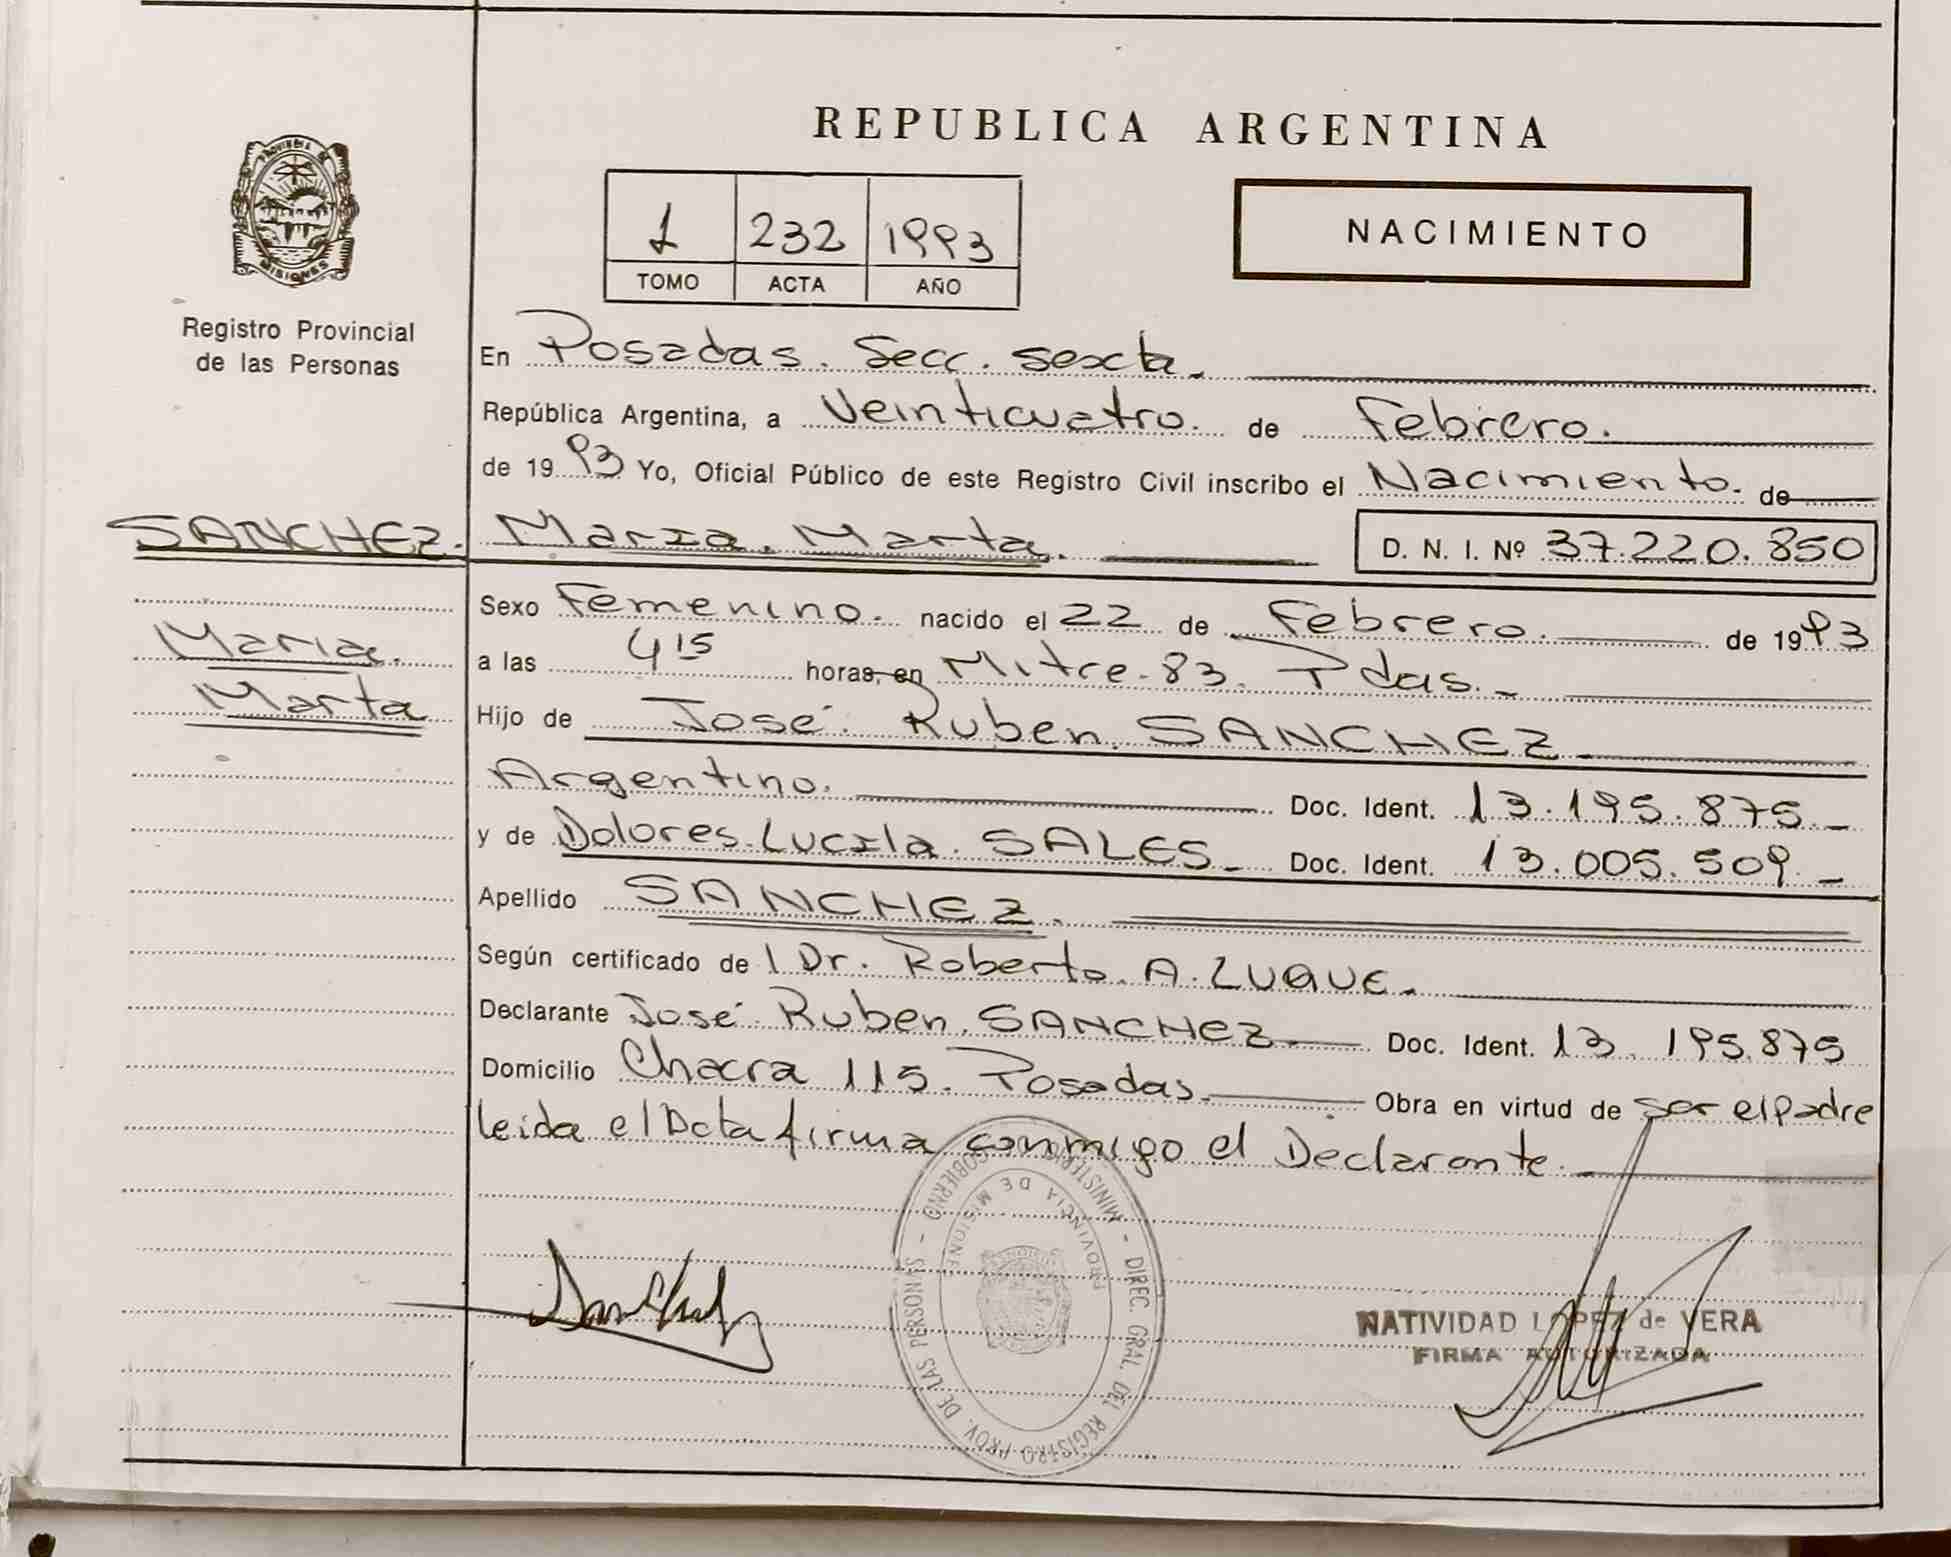 REPUBLICA ARGENTINA
PROVINCIA DE
MISIONES
Registro Provincial
de las Personas
1 232 1993
TOMO ACTA AÑO
NACIMIENTO
En Posadas. Secc. sexta.
República Argentina, a Veinticuatro. de Febrero.
de 1993 Yo, Oficial Público de este Registro Civil inscribo el Nacimiento. de
SANCHEZ. Maria. Marta. D. N. I. Nº 37.220.850
Maria.
Marta
Sexo Femenino. nacido el 22 de Febrero. de 1993
a las 4 15 horas, en Mitre. 83. Pdas.
Hijo de José. Ruben. SANCHEZ
Argentino. Doc. Ident. 13.195.875.
y de Dolores. Lucila. SALES Doc. Ident. 13.005.509.
Apellido SANCHEZ.
Según certificado de l Dr. Roberto. A. LUQUE.
Declarante José. Ruben. SANCHEZ Doc. Ident. 13.195.875
Domicilio Chacra 115. Posadas Obra en virtud de ser el padre
leida el Acta firma conmigo el Declarante.
MINISTERIO GOBIERNO - DIREC. GRAL. DEL REGISTRO PROV. DE LAS PERSONAS -
PROVINCIA DE MISIONES
NATIVIDAD LOPEZ de VERA
FIRMA AUTORIZADA